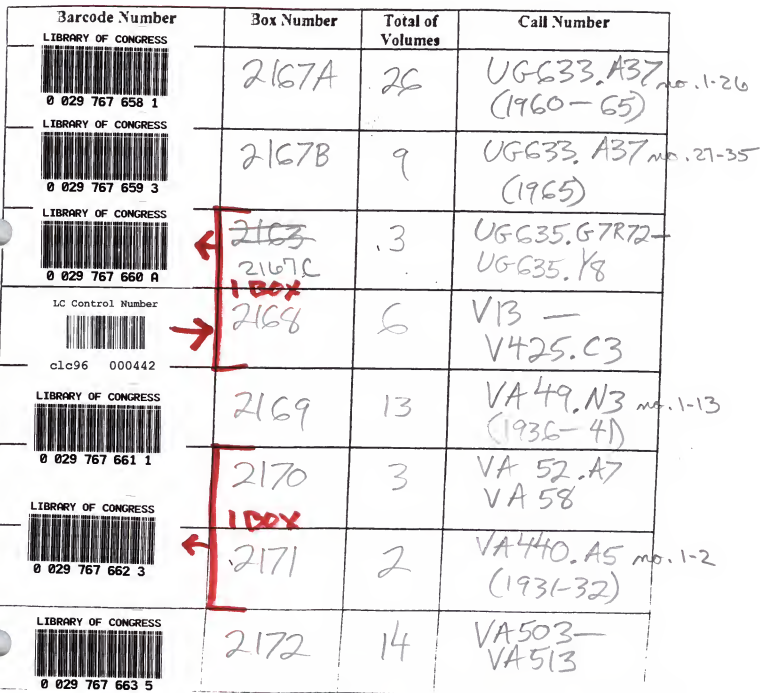 Barcode Number Box Number Total of Volumes Call Number
LIBRARY OF CONGRESS
0 029 767 658 1
2167A 26 UG633.A37 no. 1-26
(1960-65)
LIBRARY OF CONGRESS
0 029 767 659 3
2167B 9 UG633.A37 no. 27-35
(1965)
LIBRARY OF CONGRESS
0 029 767 660 A
2163
2167C
3 UG635.G7R72-
UG635.Y8
1 BOX
LC Control Number
clc96 000442
2168 6 V13 -
V425.C3
LIBRARY OF CONGRESS
0 029 767 661 1
2169 13 VA49.N3 no. 1-13
(1936-41)
2170 3 VA 52.A7
VA 58
1 BOX
LIBRARY OF CONGRESS
0 029 767 662 3
2171 2 VA440.A5 no. 1-2
(1931-32)
LIBRARY OF CONGRESS
0 029 767 663 5
2172 14 VA503-
VA513